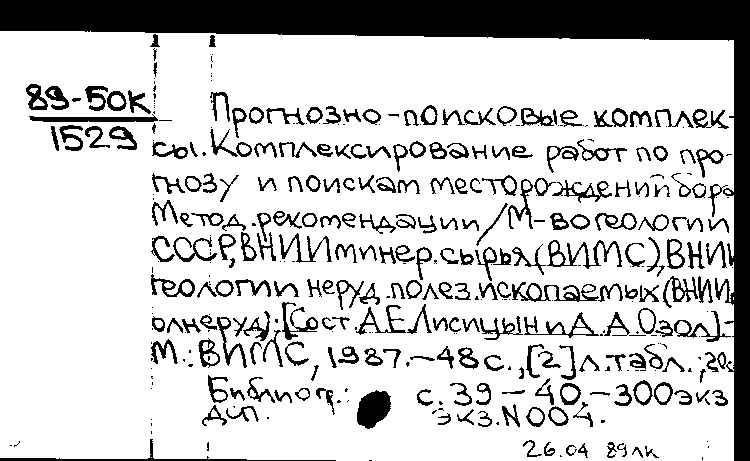 89-50К
1529
Прогнозно-поисковые комплек-
сы. Комплексирование работ по про-
гнозу и поискам месторождений бора
Метод. рекомендации / М-во геологии
СССР, ВНИИ минер. сырья (ВИМС), ВНИИ
геологии неруд. полез. ископаемых (ВНИИ
олнеруд); [Сост. А.Е. Лисицын и А.А. Озол].-
М.: ВИМС, 1987.-48 с., [2] л. табл.; 20
Библиогр.: с. 39-40.-300 экз
ДСП. экз. N 004.
26.04 89